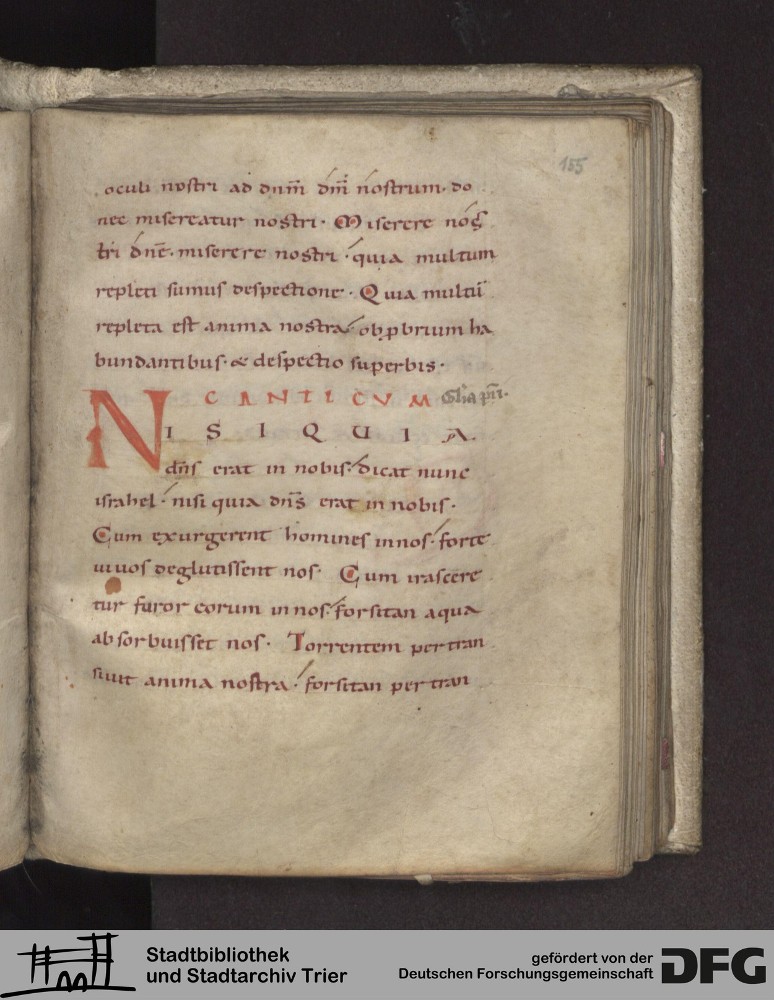 155
oculi nostri ad dnm̄ dm̄ nostrum· do
nec misereatur nostri· Miserere nos
tri dn̄e· miserere nostri· quia multum
repleti sumus despectione· Quia multū
repleta est anima nostra· obp̱brium ha
bundantibus· & despectio superbis·
CANTICVM Gl̄ia pr̄i·
NISI QUIA
dn̄s erat in nobis· dicat nunc
israhel· nisi quia dn̄s erat in nobis·
Cum exurgerent homines in nos· forte
uiuos deglutissent nos· Cum irascere
tur furor eorum in nos· forsitan aqua
absorbuisset nos· Torrentem pertran
siuit anima nostra· forsitan pertran
Stadtbibliothek
und Stadtarchiv Trier
gefördert von der
Deutschen Forschungsgemeinschaft
DFG